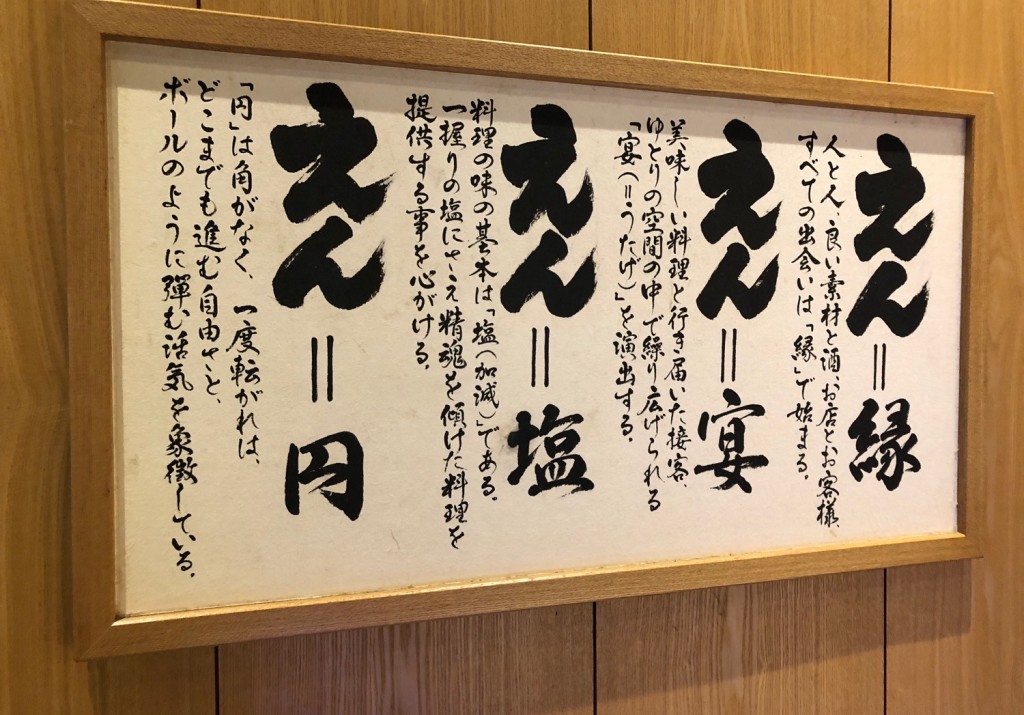 えん=縁
人と人、良い素材と酒、お店とお客様、
すべての出会いは「縁」で始まる。
えん=宴
美味しい料理と行き届いた接客、
ゆとりの空間の中で繰り広げられる
「宴(=うたげ)」を演出する。
えん=塩
料理の味の基本は「塩(加減)」である。
一握りの塩にさえ精魂を傾けた料理を
提供する事を心がける。
えん=円
「円」は角がなく、一度転がれば、
どこまでも進む自由さと、
ボールのように弾む活気を象徴している。